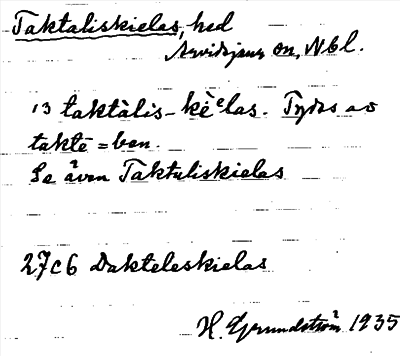 Taktaliskielas, hed
Arvidsjaur sn, Nbl.
13 taktàlis-kèelas. Tydes av
taktē = ben.
Se även Taktuliskielas
27c6 Dakteleskielas
H. Grundström 1935